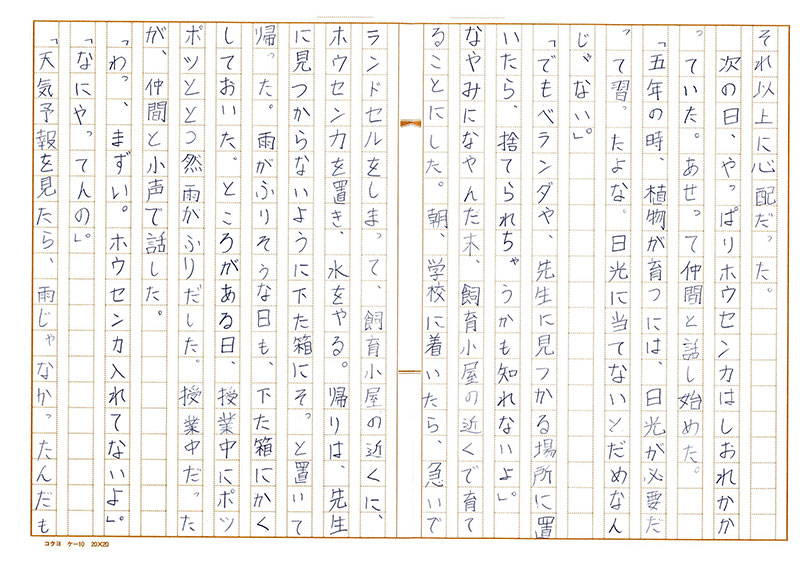 それ以上に心配だった。
次の日、やっぱりホウセンカはしおれかか
っていた。あせって仲間と話し始めた。
「五年の時、植物が育つには、日光が必要だ
って習ったよな。日光に当てないとだめなん
じゃない」。
「でもベランダや、先生に見つかる場所に置
いたら、捨てられちゃうかも知れないよ」。
なやみになやんだ末、飼育小屋の近くで育て
ることにした。朝、学校に着いたら、急いで
ランドセルをしまって、飼育小屋の近くに、
ホウセンカを置き、水をやる。帰りは、先生
に見つからないように下た箱にそっと置いて
帰った。雨がふりそうな日も、下た箱にかく
しておいた。ところがある日、授業中にポツ
ポツととつ然雨がふりだした。授業中だった
が、仲間と小声で話した。
「わっ、まずい。ホウセンカ入れてないよ」。
「なにやってんの」。
「天気予報を見たら、雨じゃなかったんだも
コクヨ ケー10 20×20